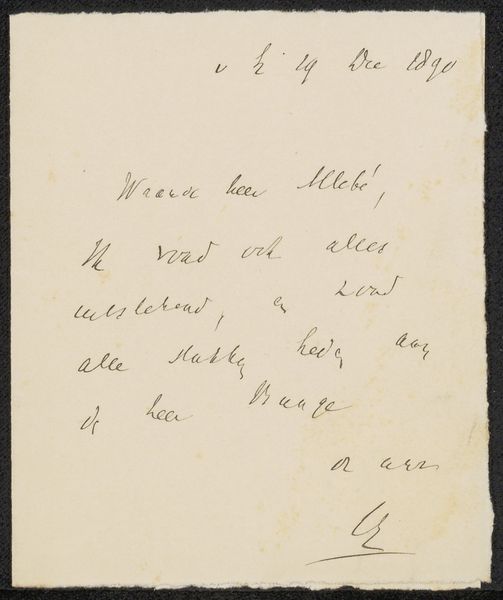 19 Dec 1890
Waarde heer Allebé,
Ik vond ook alles
uitstekend, en zond
alle stukken heden aan
de heer Bunge
de uwe